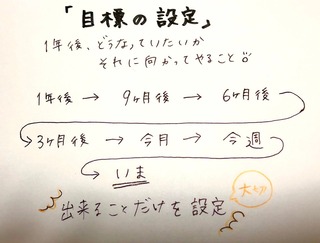 「目標の設定」
1年後、どうなっていたいか
それに向かってやること
1年後 → 9ヶ月後 → 6ヶ月後
→ 3ヶ月後 → 今月 → 今週
→ いま
大切
出来ることだけを設定